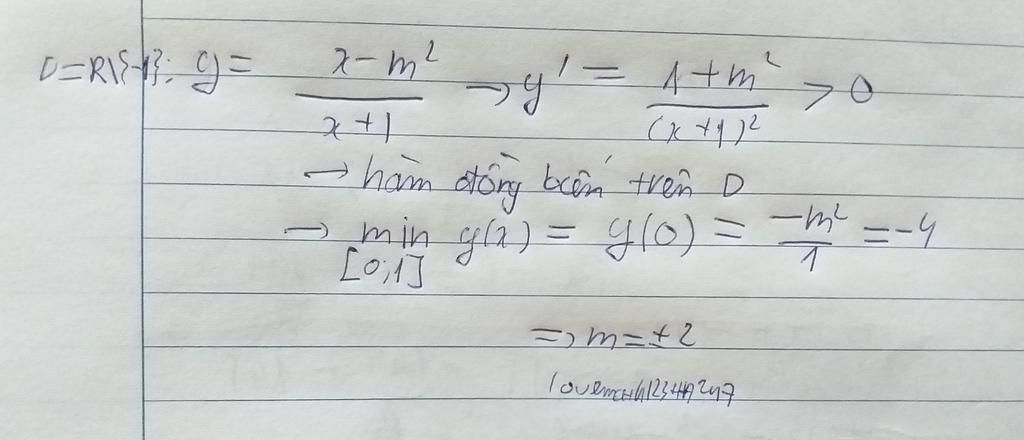 D=R\{-1}: y = \frac{x-m^2}{x+1} → y' = \frac{1+m^2}{(x+1)^2} > 0
→ hàm đồng biến trên D
→ \min_{[0;1]} y(x) = y(0) = \frac{-m^2}{1} = -4
=> m = ±2